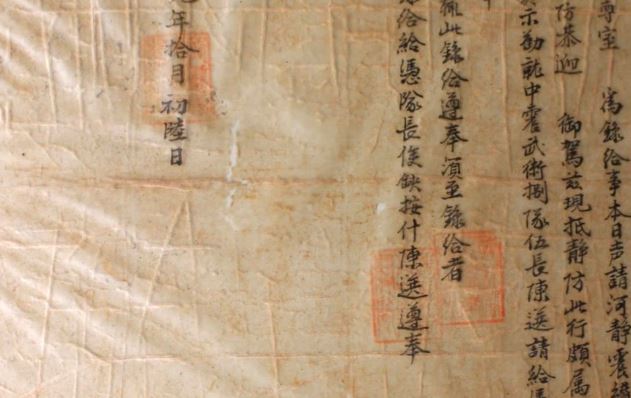 尊室 爲錄給事本日声請河靜
防恭迎 御駕玆現抵靜防此行頗属
示勸就中奮武衛捌隊伍長陳送請給
此錄給遵奉須至錄給者
給給憑隊長俟缺按什陳送遵奉
年拾月初陸日